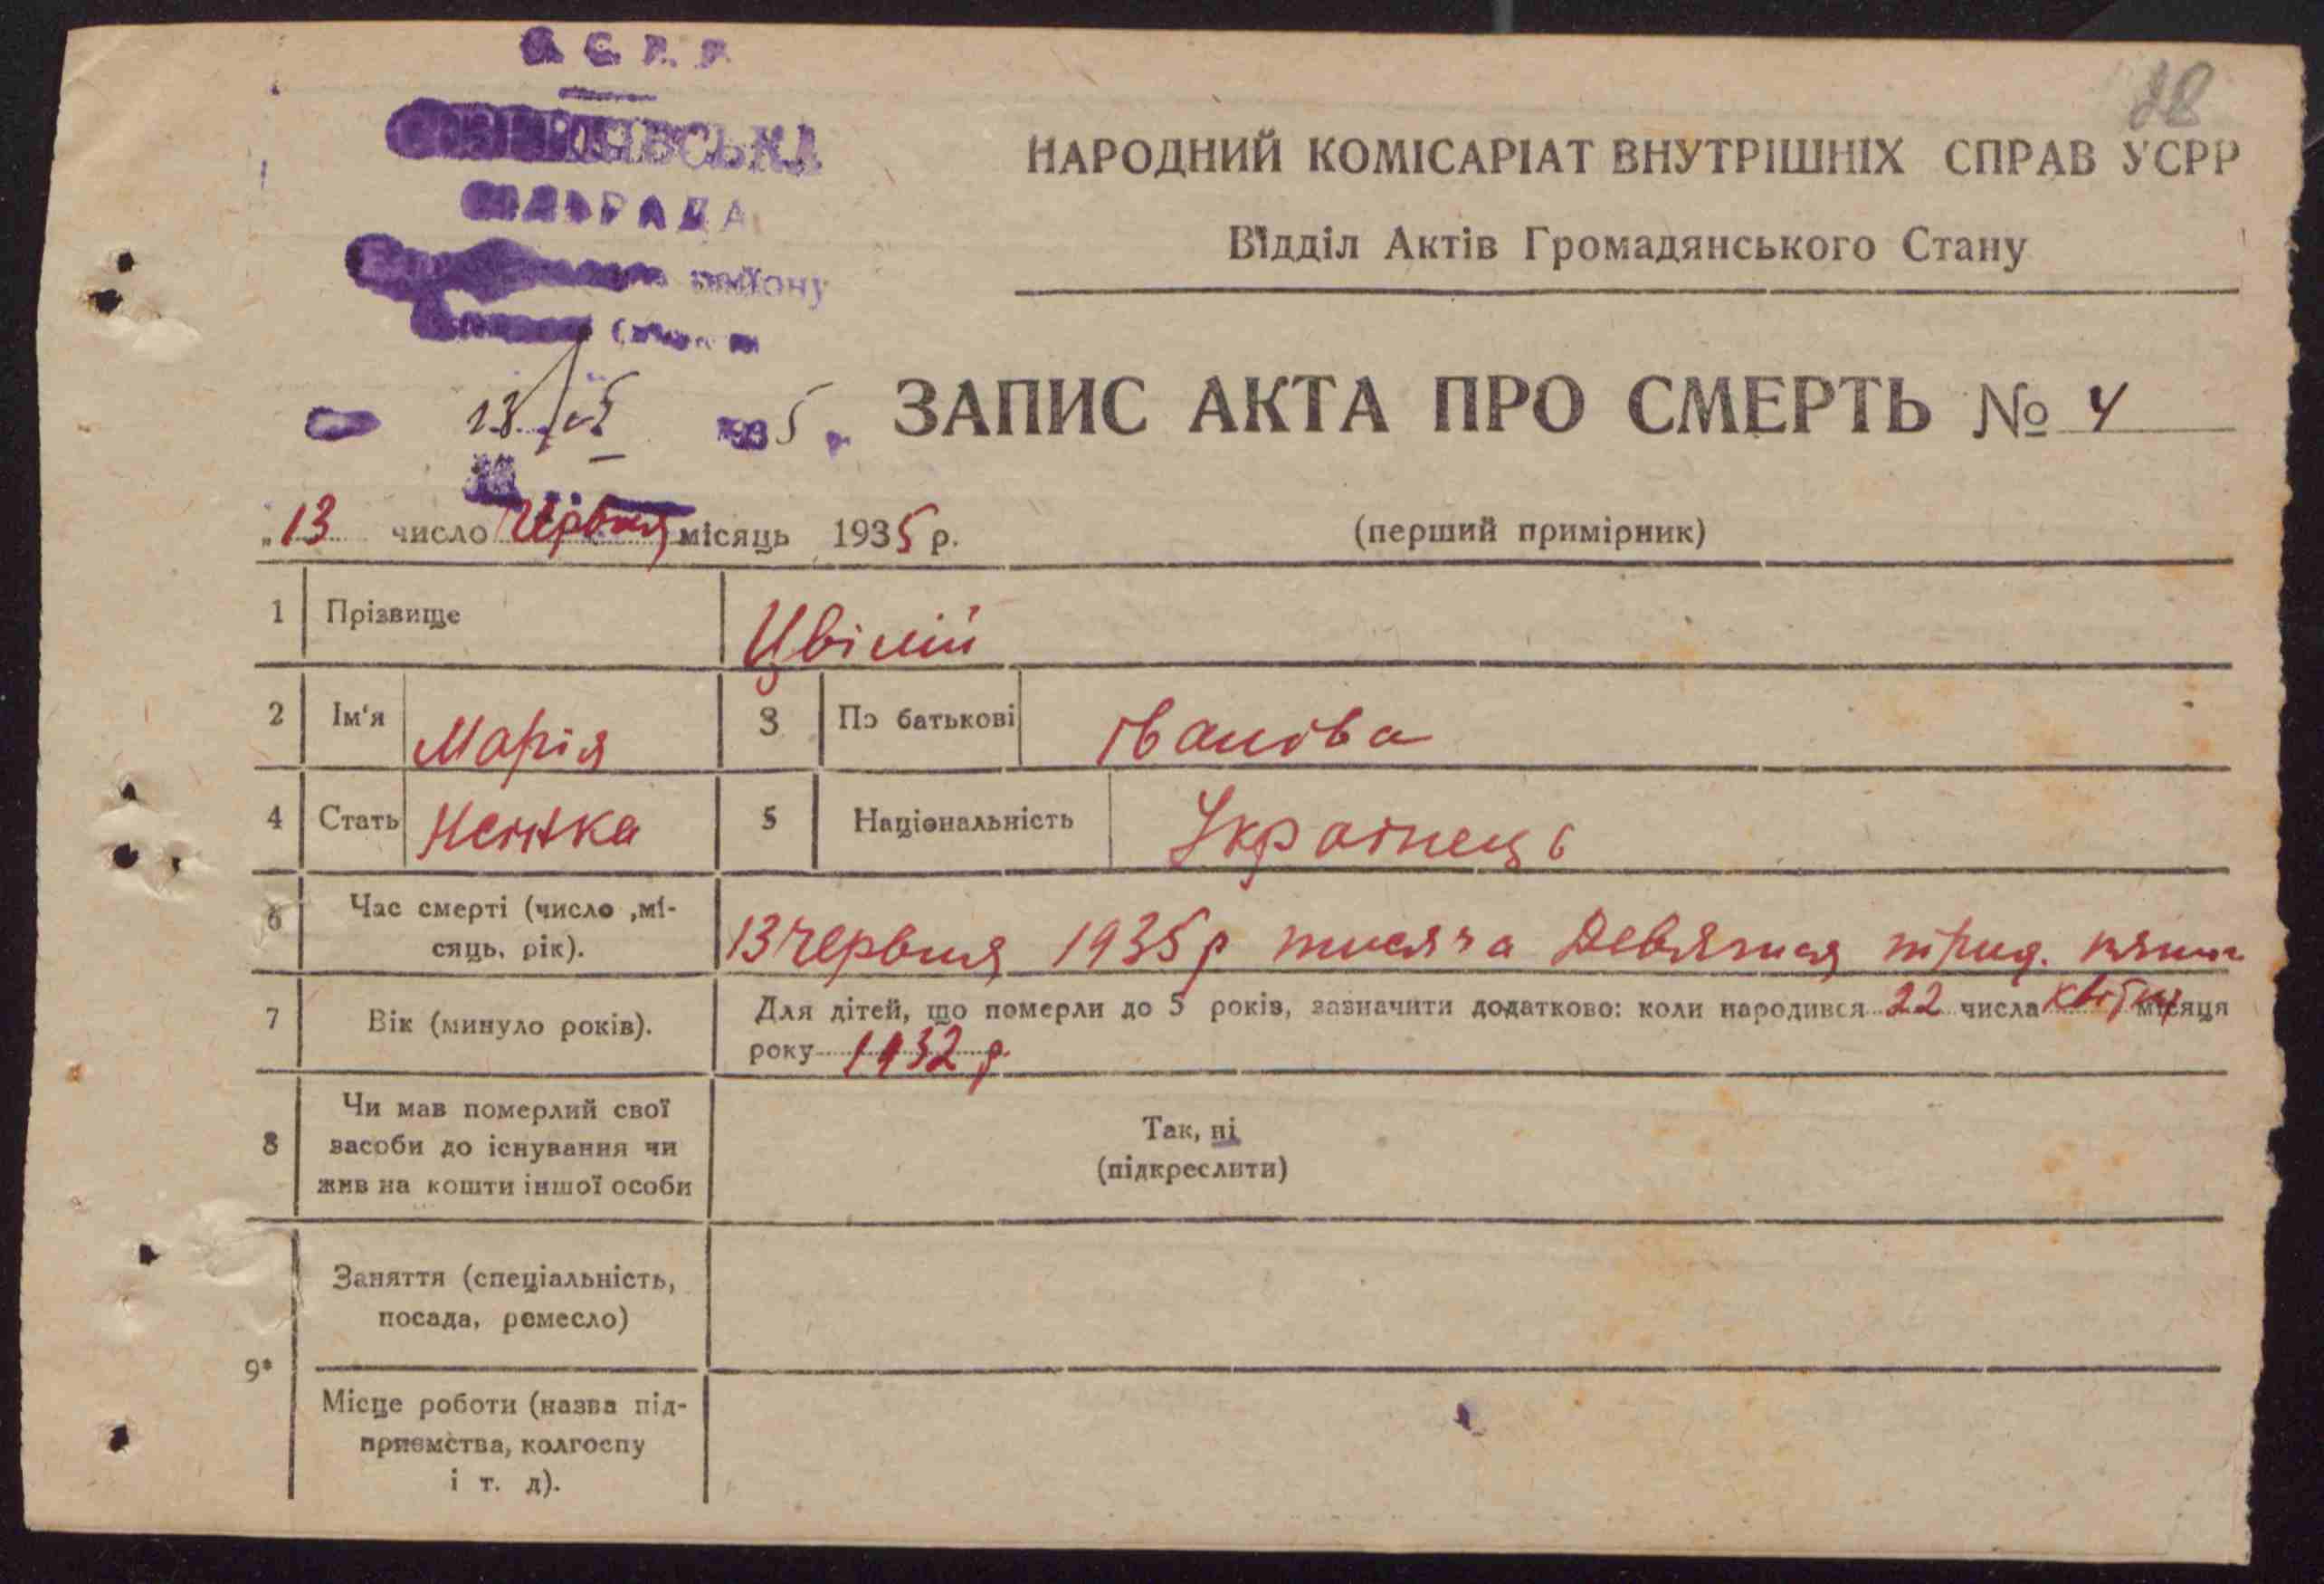 У. С. Р. Р.
СІЛЬРАДА
району
28
НАРОДНИЙ КОМІСАРІАТ ВНУТРІШНІХ СПРАВ УСРР
Відділ Актів Громадянського Стану
ЗАПИС АКТА ПРО СМЕРТЬ № 4
13/VI 1935 р.
„13 число Червня місяць 1935 р.
(перший примірник)
1 Прізвище Цвілій
2 Ім'я Марія 3 По батькові Іванова
4 Стать Жентка 5 Національність Українець
6 Час смерті (число ,мі-
сяць, рік). 13 червня 1935 р тисяча Девятися трид. пять
7 Вік (минуло років). Для дітей, що померли до 5 років, зазначити додатково: коли народився 22 числа квітня місяця
року 1932 р
8 Чи мав померлий свої
засоби до існування чи
жив на кошти іншої особи
Так, ні
(підкреслити)
9* Заняття (спеціальність,
посада, ремесло)
Місце роботи (назва під-
приємства, колгоспу
і т. д).